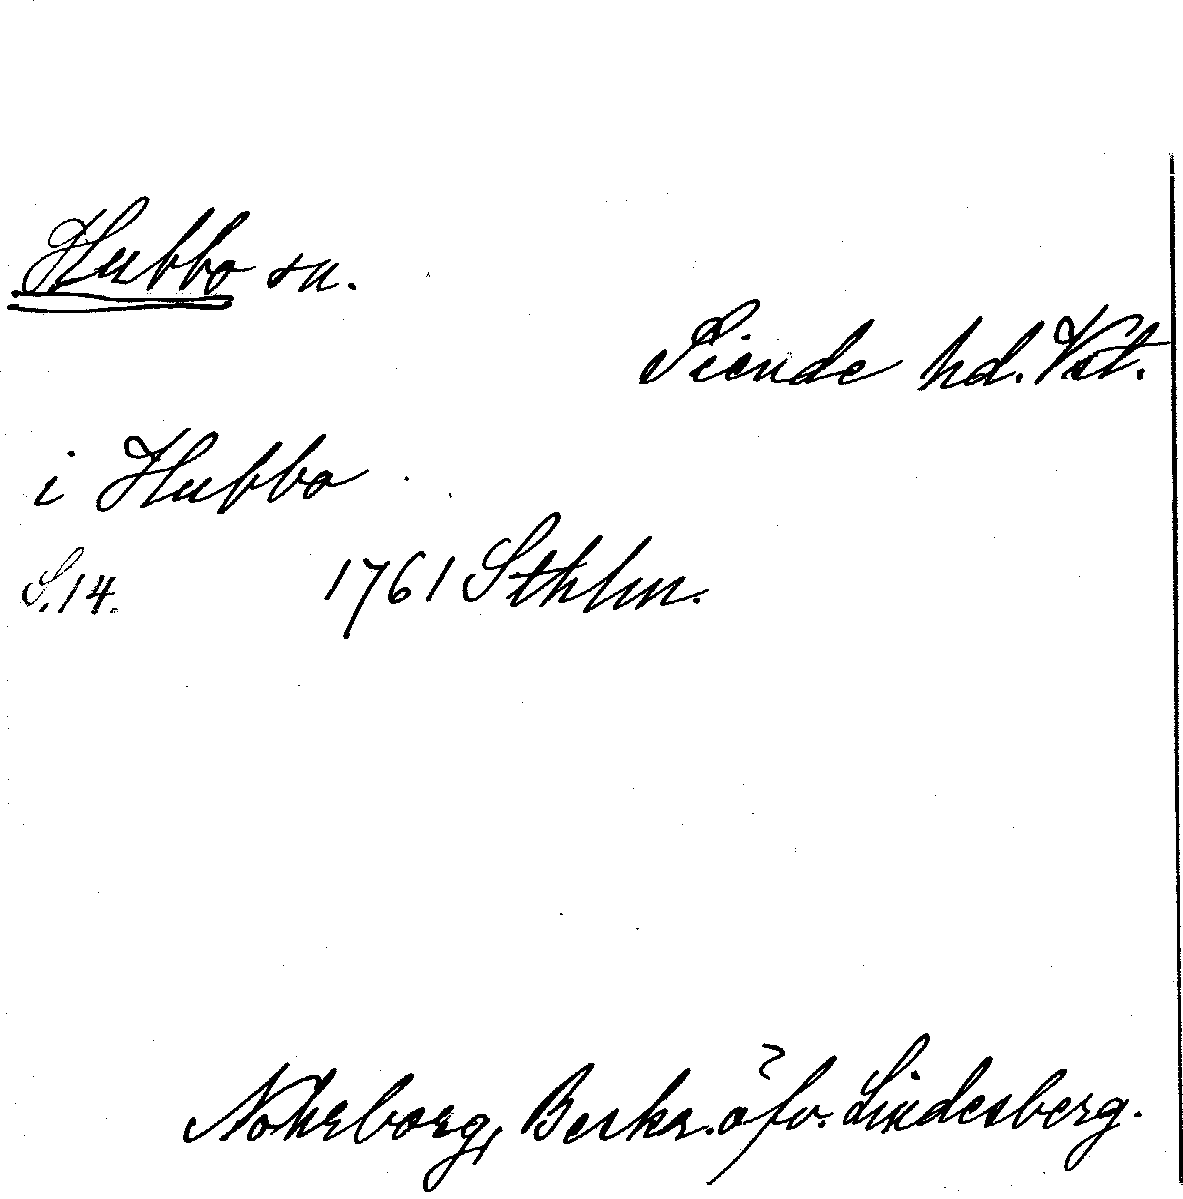 Hubbo sn.
Siende hd. Vst.
i Hubbo
S.14. 1761 Sthlm.
Nohrborg, Beskr. öfv. Lindesberg.